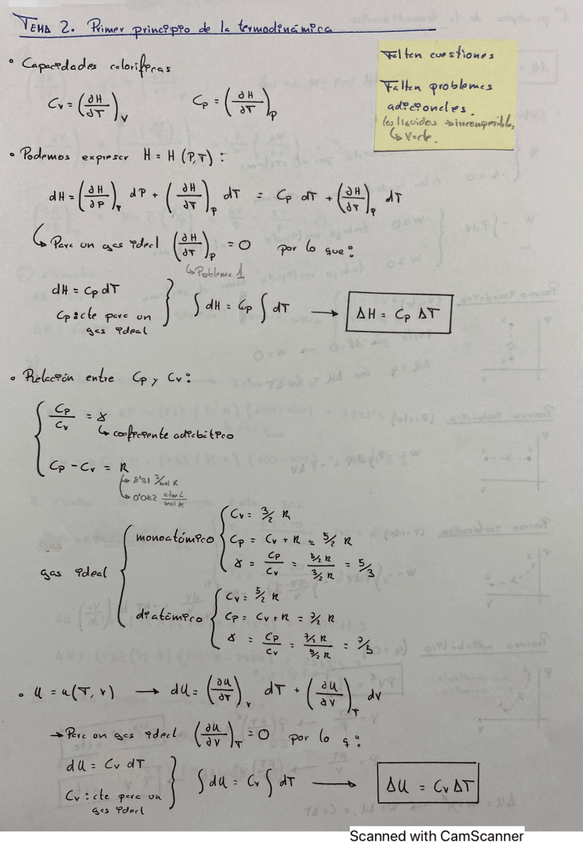 TEMA 2. Primer principio de la termodinámica
Falten cuestiones
Falten problemas
adicionales.
los líquidos → incompresible,
↳ V=cte.
• Capacidades caloríficas
Cv = (∂H/∂T)_V    Cp = (∂H/∂T)_P
• Podemos expresar H = H (P,T) :
dH = (∂H/∂P)_T dP + (∂H/∂T)_P dT = Cp dT + (∂H/∂T)_P dT
↳ Para un gas ideal (∂H/∂T)_P = 0 por lo que:
↳ Problema 1
dH = Cp dT
Cp: cte para un
gas ideal
∫ dH = Cp ∫ dT → ΔH = Cp ΔT
• Relación entre Cp y Cv:
Cp/Cv = γ
↳ coeficiente adiabático
Cp - Cv = R
↳ 8'31 J/mol K
↳ 0'082 atm L/mol K
gas ideal
monoatómico
Cv = 3/2 R
Cp = Cv + R = 5/2 R
γ = Cp/Cv = 5/2 R / 3/2 R = 5/3
diatómico
Cv = 5/2 R
Cp = Cv + R = 7/2 R
γ = Cp/Cv = 7/2 R / 5/2 R = 7/5
• U = U (T, V) → dU = (∂U/∂T)_V dT + (∂U/∂V)_T dV
→ Para un gas ideal (∂U/∂V)_T = 0 por lo q:
dU = Cv dT
Cv: cte para un
gas ideal
∫ dU = Cv ∫ dT → ΔU = Cv ΔT
Scanned with CamScanner